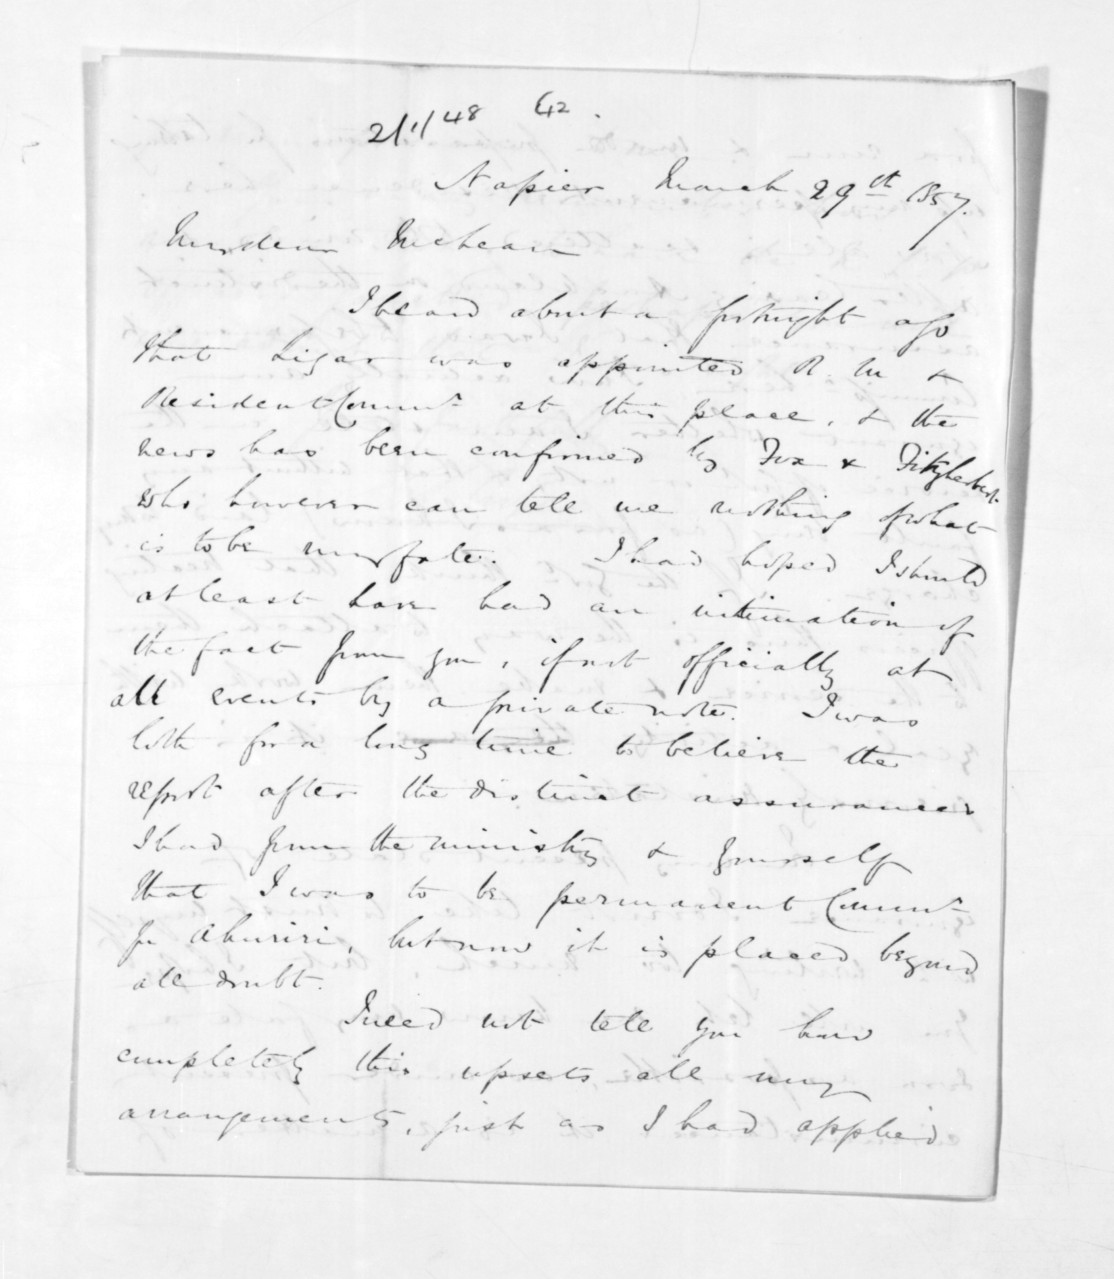 2/1/48 E42.
Napier March 29th 1857.
My dear McLean
I heard about a fortnight ago
that Ligar was appointed R. M &
Resident Commr at this place, & the
news has been confirmed by Fox & Fitzherbert
who however can tell me nothing of what
is to be my fate. I had hoped I should
at least have had an intimation of
the fact from you, if not officially at
all events by a private note. I was
loth for a long time to believe the
report after the distinct assurances
I had from the ministry & yourself
that I was to be permanent Commr
for Ahuriri, but now it is placed beyond
all doubt.
I need not tell you how
completely this upsets all my
arrangements, just as I had applied